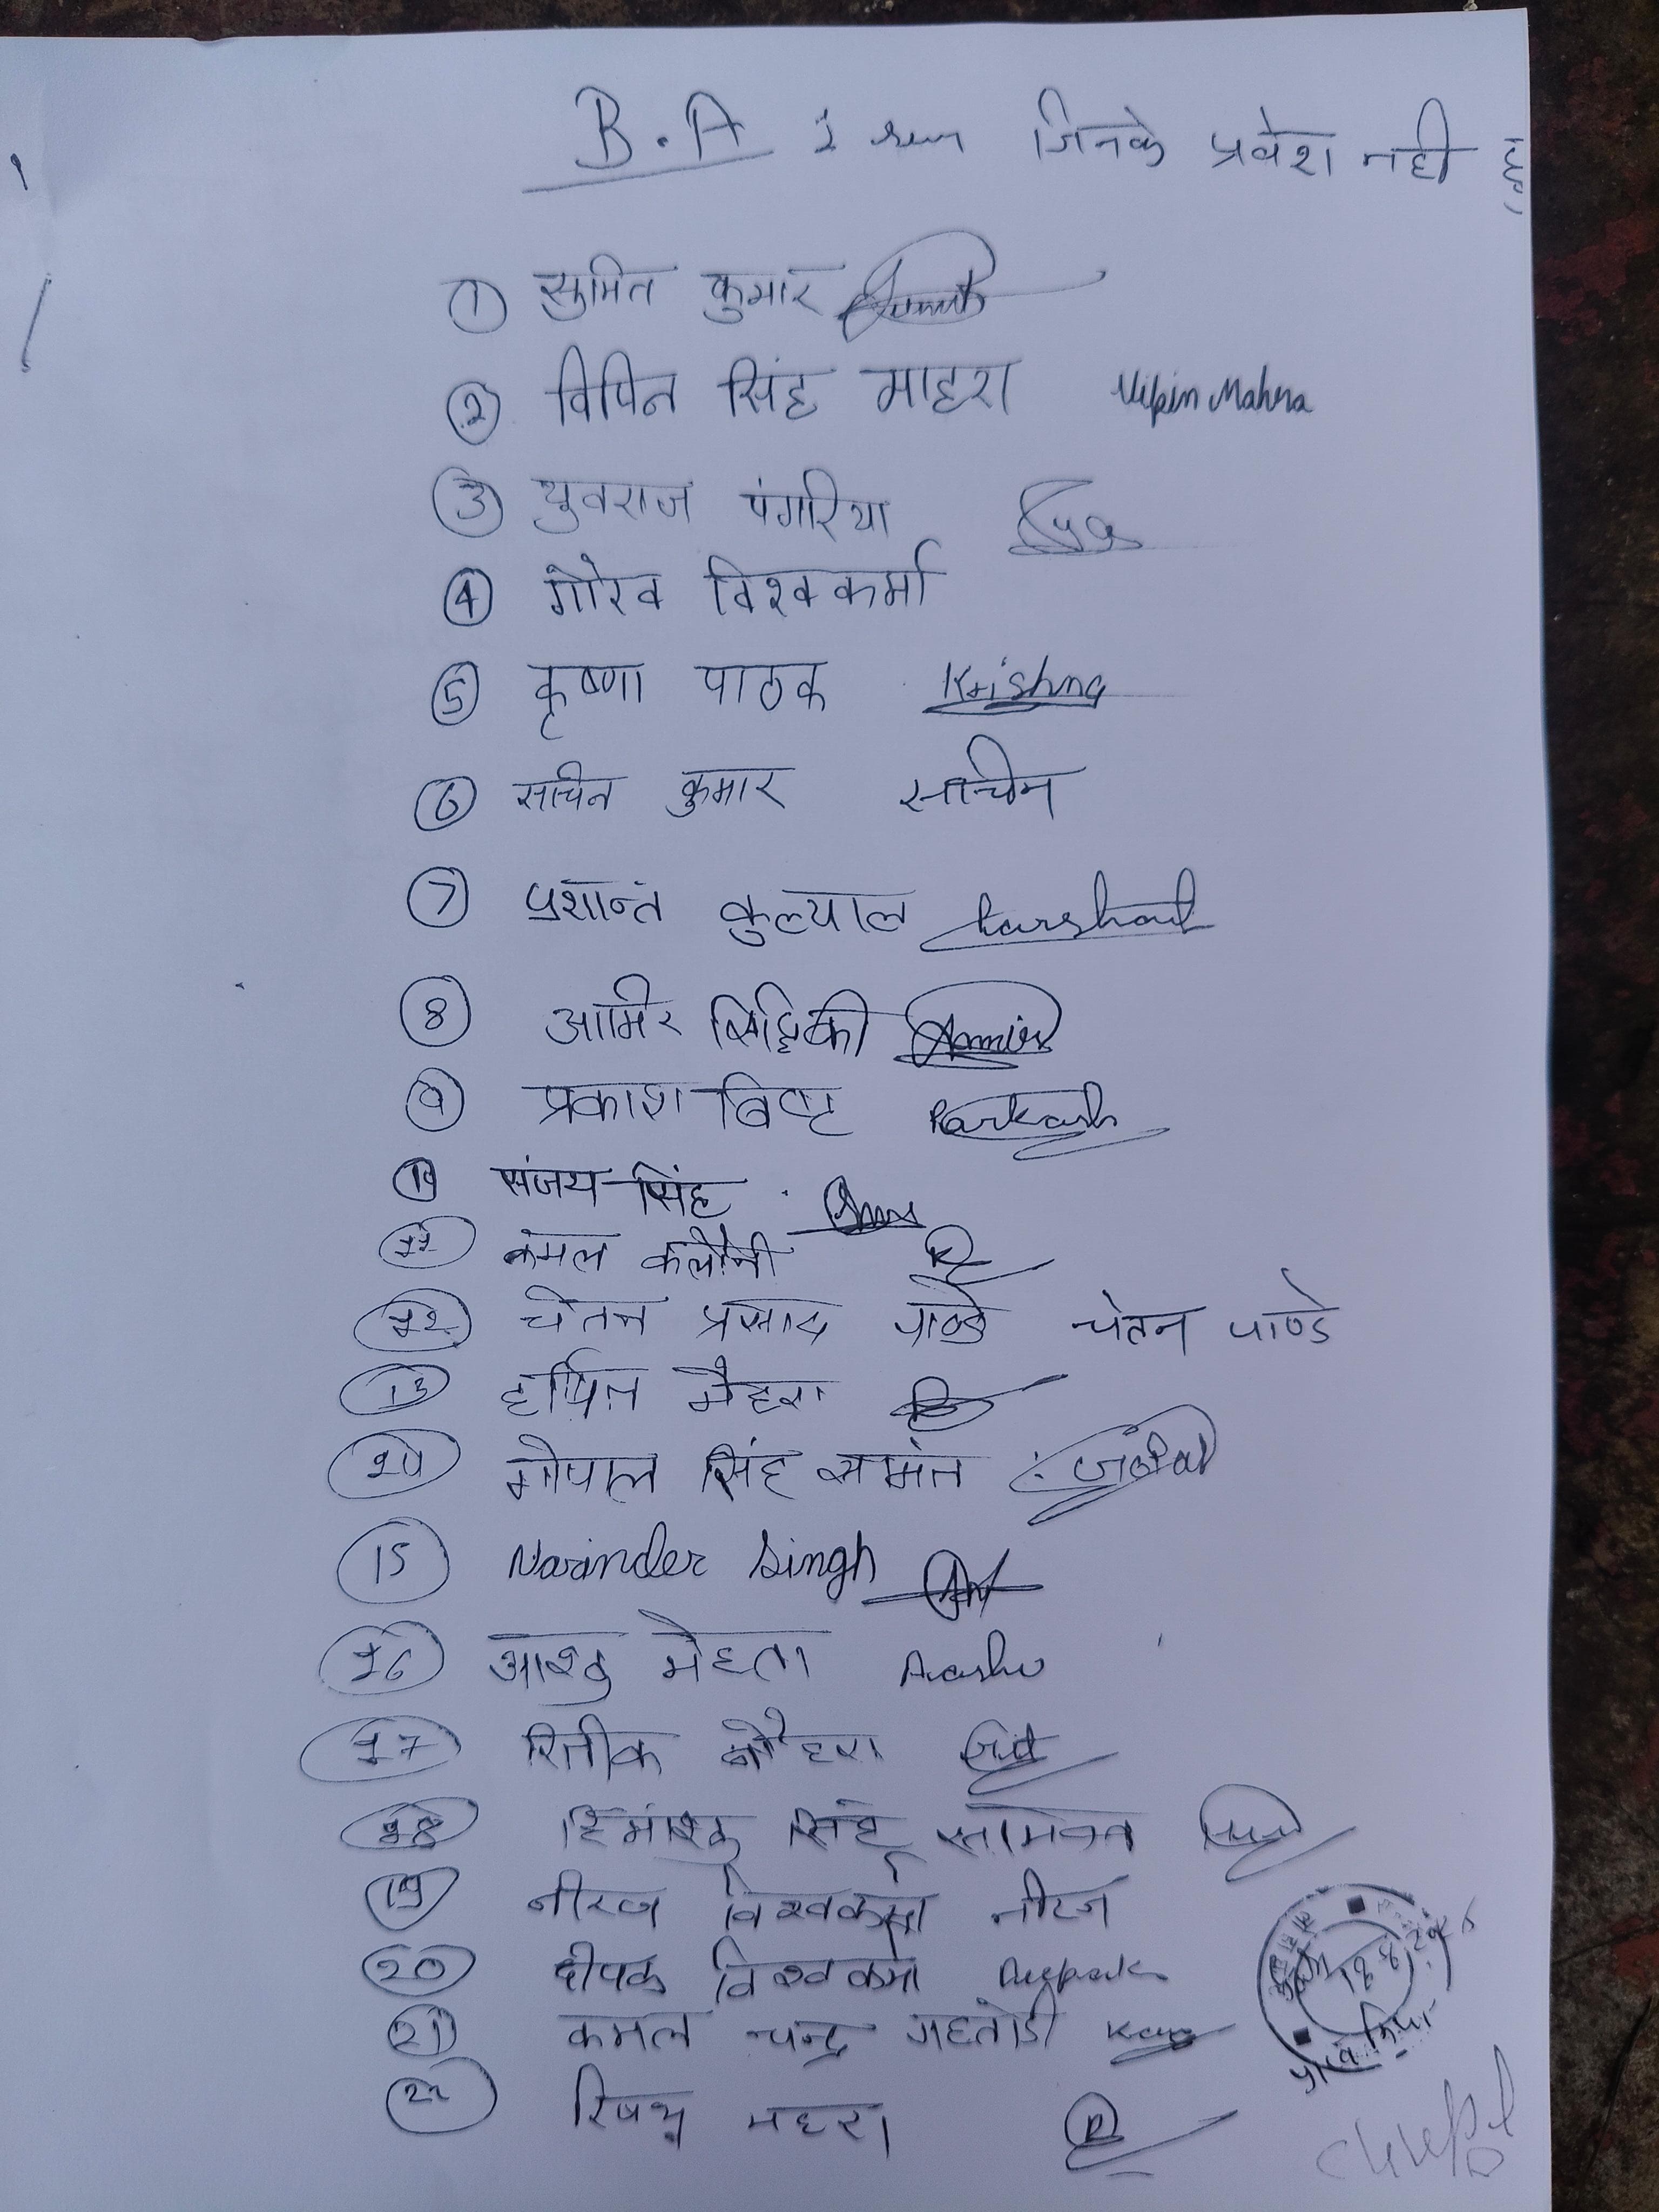 B.A 1 sem जिनके प्रवेश नही हुए
① सुमित कुमार Sumit
② विपिन सिंह माहरा Vipin Mahera
③ युवराज पंगरिया
④ गोरव विश्वकर्मा
⑤ कृष्णा पाठक Krishna
⑥ सचिन कुमार सचिन
⑦ प्रशान्त कुल्याल Parshant
⑧ आमिर सिद्दिकी Aamir
⑨ प्रकाश बिष्ट Parkash
⑩ संजय सिंह
11 कमल कलौनी
12 चेतन प्रसाद पाण्डे चेतन पाण्डे
13 हर्षित मेहरा
14 गोपाल सिंह सामंत Gopal
15 Narinder Singh
16 आशु मेहता Aashu
17 रितीक बौहरा
18 हिमांशु सिंह सामन्त
19 नीरज विश्वकर्मा नीरज
20 दीपक विश्वकर्मा Deepak
21 कमल चन्द्र गहतोडी
22 रिषभ महरा
18 8